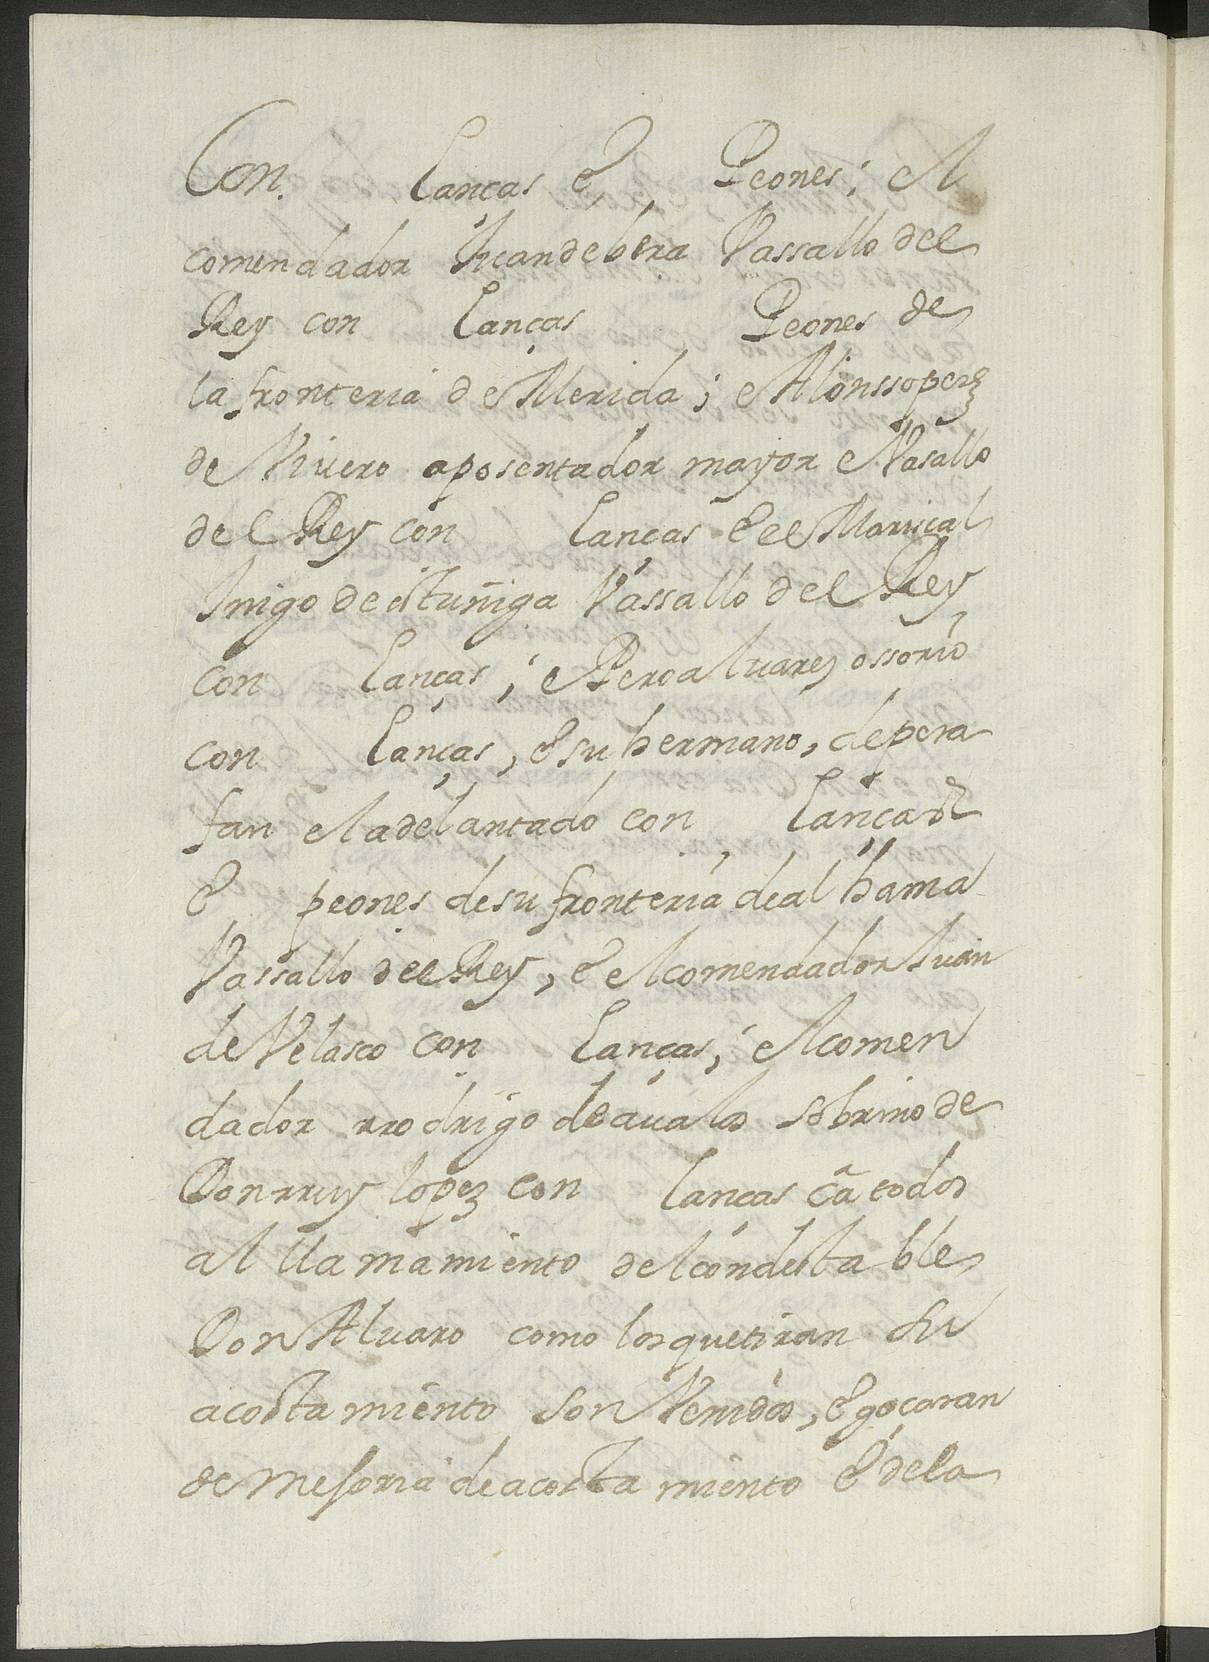 Con. Lanças e Peones; el
comendador Juan de bera Vassallo del
Rey con Lanças Peones de
la fronteria de Merida; e Alonsso perz
de Vivero aposentador mayor e Vasallo
del Rey con Lanças e el Marrical
Inigo de estuñiga Vassallo del Rey
con Lanças; e Pero aluarez ossorio
con Lanças, e su hermano, de pera
fan el adelantado con Lanças
e peones de su fronteria de al hama
Vassallo del Rey, e el comendador Juan
de Velasco con Lanças; el comen
dador rrodrigo de aualos sobrino de
Don rruy lopez con lanças cã todos
al llamamiento del condestable
Don Aluaro como los que tiran su
acostamiento son Venidos, e goçaran
de mesoria de acostamiento e de la